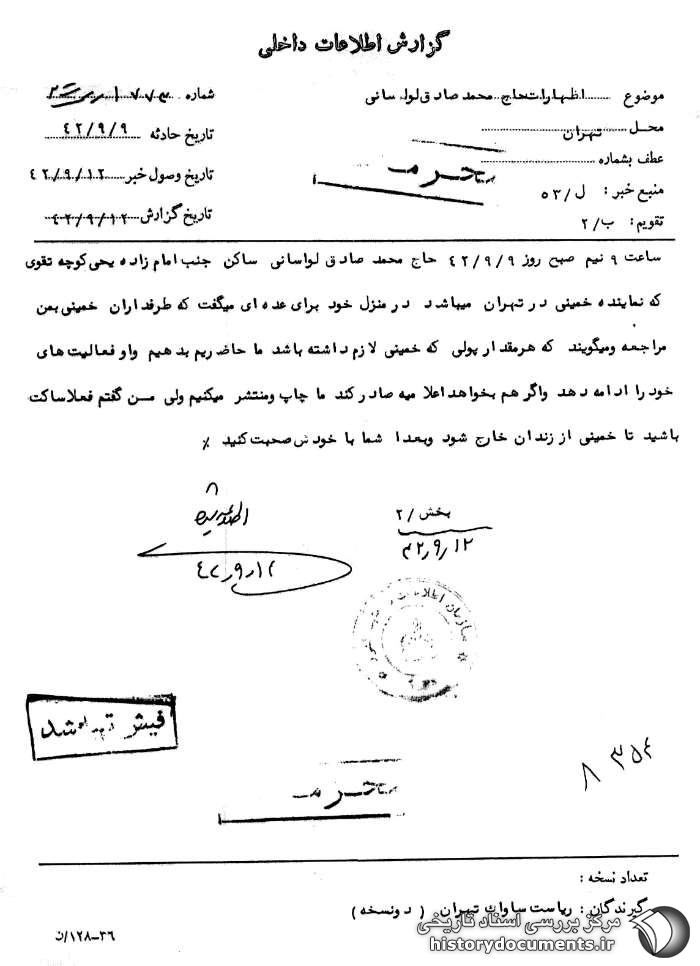 گزارش اطلاعات داخلی
موضوع اظهارات حاج محمد صادق لواسانی
شماره
محل تهران
تاریخ حادثه ۴۲/۹/۹
عطف بشماره
تاریخ وصول خبر ۴۲/۹/۱۲
منبع خبر: ل/۵۳
تاریخ گزارش ۴۲/۹/۱۲
تقویم: ب/۲
محرمانه
ساعت ۹ نیم صبح روز ۴۲/۹/۹ حاج محمد صادق لواسانی ساکن جنب امام زاده یحی کوچه تقوی
که نماینده خمینی در تهران میباشد در منزل خود برای عده ای میگفت که طرفداران خمینی بمن
مراجعه ومیگویند که هرمقدار پولی که خمینی لازم داشته باشد ما حاضریم بدهیم واو فعالیت های
خود را ادامه دهد واگر هم بخواهد اعلامیه صادر کند ما چاپ ومنتشر میکنیم ولی من گفتم فعلا ساکت
باشید تا خمینی از زندان خارج شود وبعدا شما با خودش صحبت کنید ٪
بخش /۲
۴۲/۹/۱۲
۴۲/۹/۱۲
فیش تهیه شد
۸ ۳۵۴
محرمانه
تعداد نسخه :
گیرندگان: ریاست ساواک تهران (دونسخه)
۳۶-۱۲۸/ن
مرکز بررسی اسناد تاریخی
historydocuments.ir